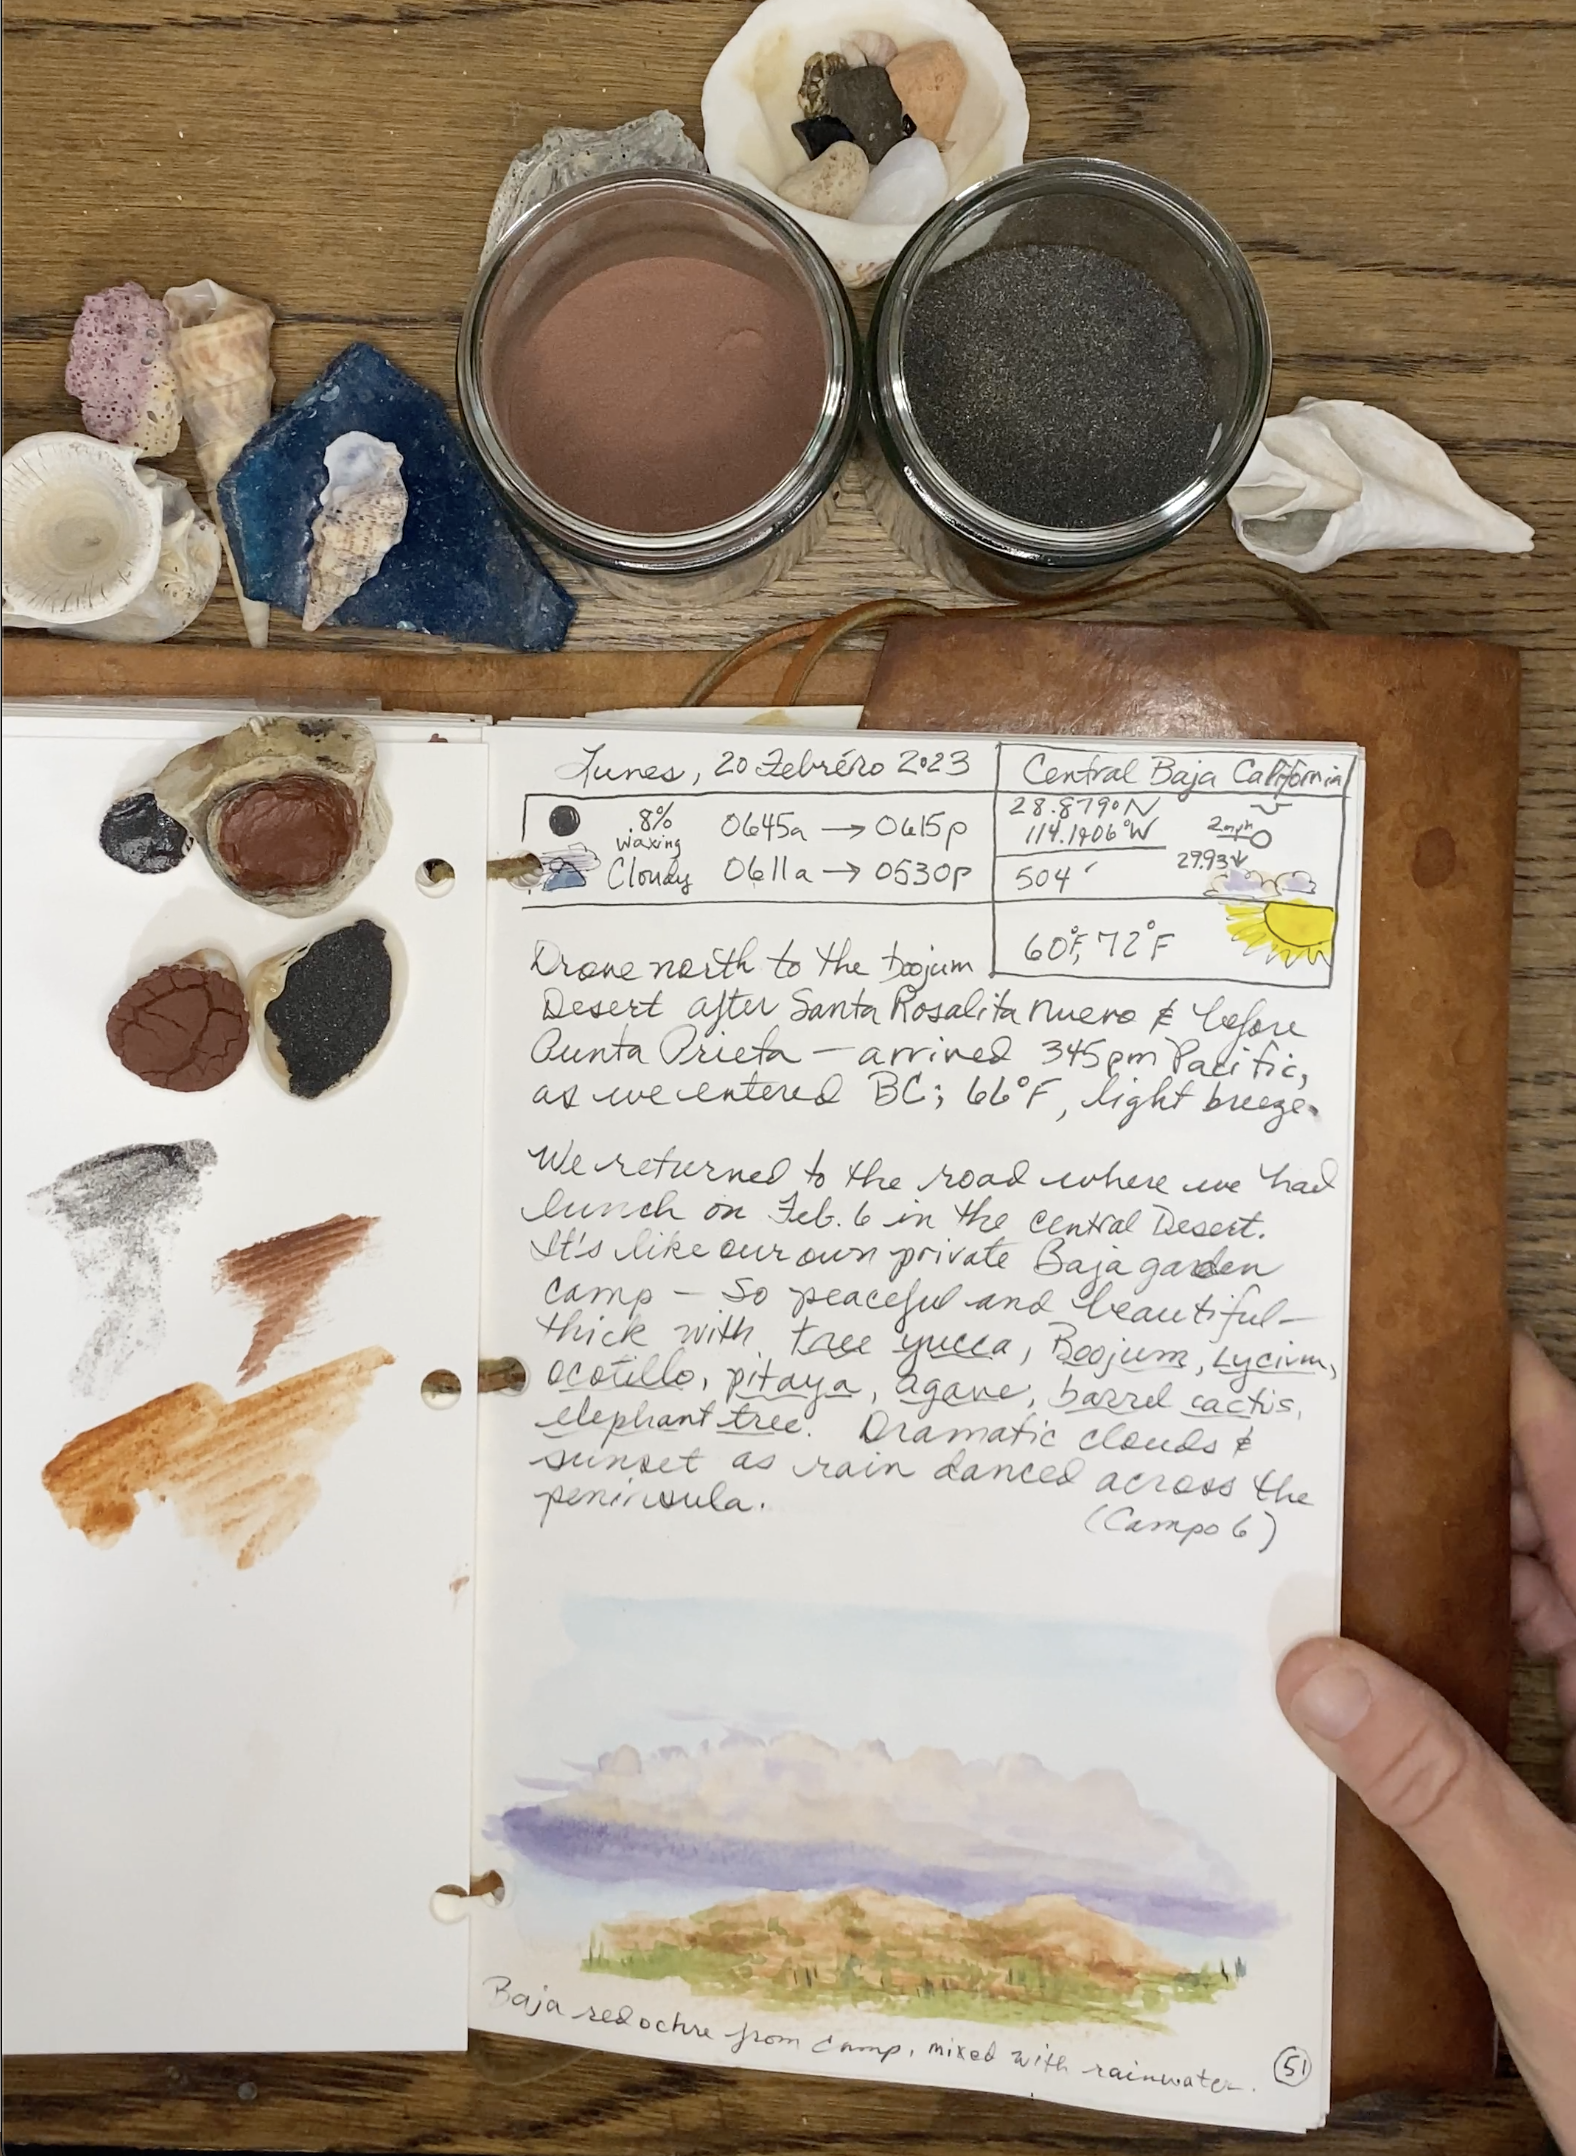 Lunes, 20 Febréro 2023
Central Baja California
.8% 0645a → 0615p
waxing
Cloudy 0611a → 0530p
28.879°N
114.1406°W
2mph
29.93↓
504'
60°F, 72°F
Drove north to the boojum
Desert after Santa Rosalita Nuevo & before
Punta Prieta — arrived 345pm Pacific,
as we entered BC; 66°F, light breeze.
We returned to the road where we had
lunch on Feb. 6 in the central Desert.
It's like our own private Baja garden
camp — So peaceful and beautiful —
thick with tree yucca, Boojum, Lycium,
ocotillo, pitaya, agave, barrel cactus,
elephant tree. Dramatic clouds &
sunset as rain danced across the
peninsula.
(Campo 6)
Baja red ochre from camp, mixed with rainwater.
51